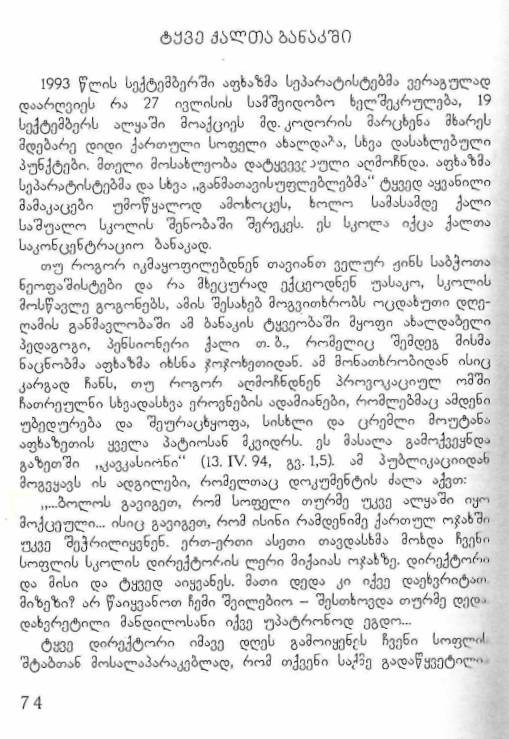 ტყვე ქალთა ბანაკში
1993 წლის სექტემბერში აფხაზმა სეპარატისტებმა ვერაგულად
დაარღვიეს რა 27 ივლისის სამშვიდობო ხელშეკრულება, 19
სექტემბერს ალყაში მოაქციეს მდ. კოდორის მარცხენა მხარეს
მდებარე დიდი ქართული სოფელი ახალდაბა, სხვა დასახლებული
პუნქტები. მთელი მოსახლეობა დატყვევებული აღმოჩნდა. აფხაზმა
სეპარატისტებმა და სხვა „განმათავისუფლებლებმა“ ტყვედ აყვანილი
მამაკაცები უმოწყალოდ ამოხოცეს, ხოლო სამასამდე ქალი
საშუალო სკოლის შენობაში შერეკეს. ეს სკოლა იქცა ქალთა
საკონცენტრაციო ბანაკად.
თუ როგორ იკმაყოფილებდნენ თავიანთ ველურ ჟინს საბჭოთა
ნეოფაშისტები და რა მხეცურად ექცეოდნენ უასაკო, სკოლის
მოსწავლე გოგონებს, ამის შესახებ მოგვითხრობს ოცდახუთი დღე-
ღამის განმავლობაში ამ ბანაკის ტყვეობაში მყოფი ახალდაბელი
პედაგოგი, პენსიონერი ქალი თ. ბ., რომელიც შემდეგ მისმა
ნაცნობმა აფხაზმა იხსნა ჯოჯოხეთიდან. ამ მონათხრობიდან ისიც
კარგად ჩანს, თუ როგორ აღმოჩნდნენ პროვოკაციულ ომში
ჩათრეულნი სხვადასხვა ეროვნების ადამიანები, რომლებმაც ამდენი
უბედურება და შეურაცხყოფა, სისხლი და ცრემლი მოუტანა
აფხაზეთის ყველა პატიოსან მკვიდრს. ეს მასალა გამოქვეყნდა
გაზეთში „კავკასიონი“ (13. IV. 94, გვ. 1,5). ამ პუბლიკაციიდან
მოგვყავს ის ადგილები, რომელთაც დოკუმენტის ძალა აქვთ:
„...ბოლოს გავიგეთ, რომ სოფელი თურმე უკვე ალყაში იყო
მოქცეული... ისიც გავიგეთ, რომ ისინი რამდენიმე ქართულ ოჯახში
უკვე შეჭრილიყვნენ. ერთ-ერთი ასეთი თავდასხმა მოხდა ჩვენი
სოფლის სკოლის დირექტორის ლერი მიქაიას ოჯახზე. დირექტორი
და მისი და ტყვედ აიყვანეს. მათი დედა კი იქვე დაეხვრიტათ.
მიზეზი? არ წაიყვანოთ ჩემი შვილებიო – შესთხოვდა თურმე დედა.
დახვრეტილი მანდილოსანი იქვე უპატრონოდ ეგდო...
ტყვე დირექტორი იმავე დღეს გამოიყენეს ჩვენი სოფლის
შტაბთან მოსალაპარაკებლად, რომ თქვენი საქმე გადაწყვეტილი
74